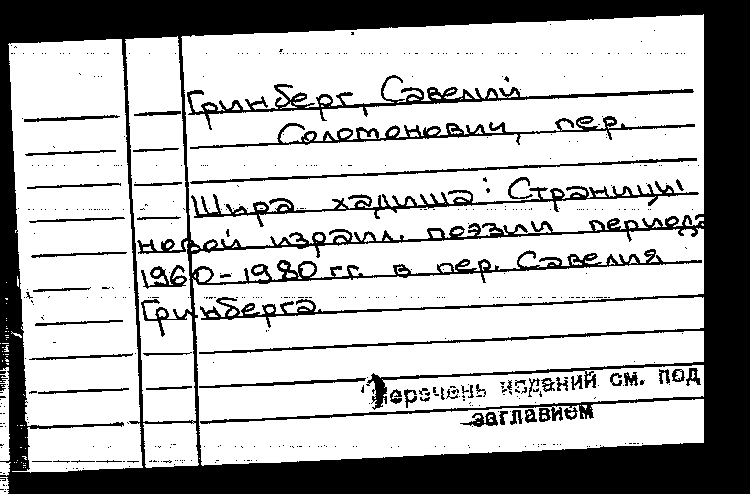 Гринберг, Савелий
Соломонович, пер.
Шира хадиша: Страницы
новой израил. поэзии периода
1960-1980 гг. в пер. Савелия
Гринберга.
Перечень изданий см. под
заглавием